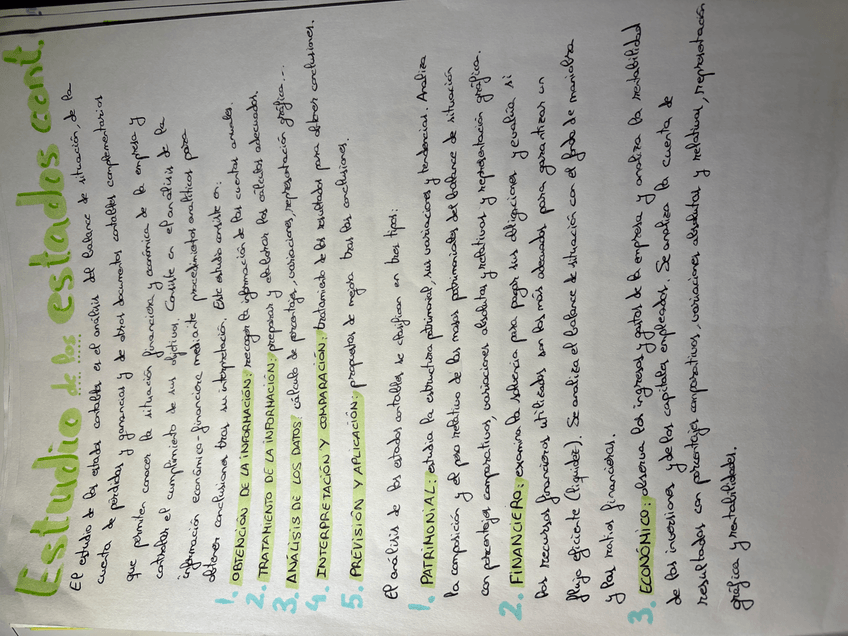 Estudio de los estados cont.
El estudio de los estados contables es el análisis del balance de situación, de la
cuenta de pérdidas y ganancias y de otros documentos contables complementarios
que permiten conocer la situación financiera y económica de la empresa y
controlar el cumplimiento de sus objetivos. Consiste en el análisis de la
información económico-financiera mediante procedimientos analíticos para
obtener conclusiones tras su interpretación. Este estudio consiste en:
1. OBTENCIÓN DE LA INFORMACIÓN: recoger la información de las cuentas anuales.
2. TRATAMIENTO DE LA INFORMACIÓN: preparar y elaborar los cálculos adecuados.
3. ANÁLISIS DE LOS DATOS: cálculo de porcentaje, variaciones, representación gráfica...
4. INTERPRETACIÓN Y COMPARACIÓN: tratamiento de los resultados para obtener conclusiones.
5. PREVISIÓN Y APLICACIÓN: propuestas de mejora tras las conclusiones.
El análisis de los estados contables se clasifican en tres tipos:
1. PATRIMONIAL: estudia la estructura patrimonial, sus variaciones y tendencias. Analiza
la composición y el peso relativo de las masas patrimoniales del balance de situación
con porcentajes comparativos, variaciones absolutas y relativas y representación gráfica.
2. FINANCIERO: examina la solvencia para pagar sus obligaciones y evalúa si
los recursos financieros utilizados son los más adecuados para garantizar un
flujo eficiente (liquidez). Se analiza el balance de situación con el fondo de maniobra
y los ratios financieros.
3. ECONÓMICO: observa los ingresos y gastos de la empresa y analiza la rentabilidad
de las inversiones y de los capitales empleados. Se analiza la cuenta de
resultados con porcentajes comparativos, variaciones absolutas y relativas, representación
gráfica y rentabilidades.